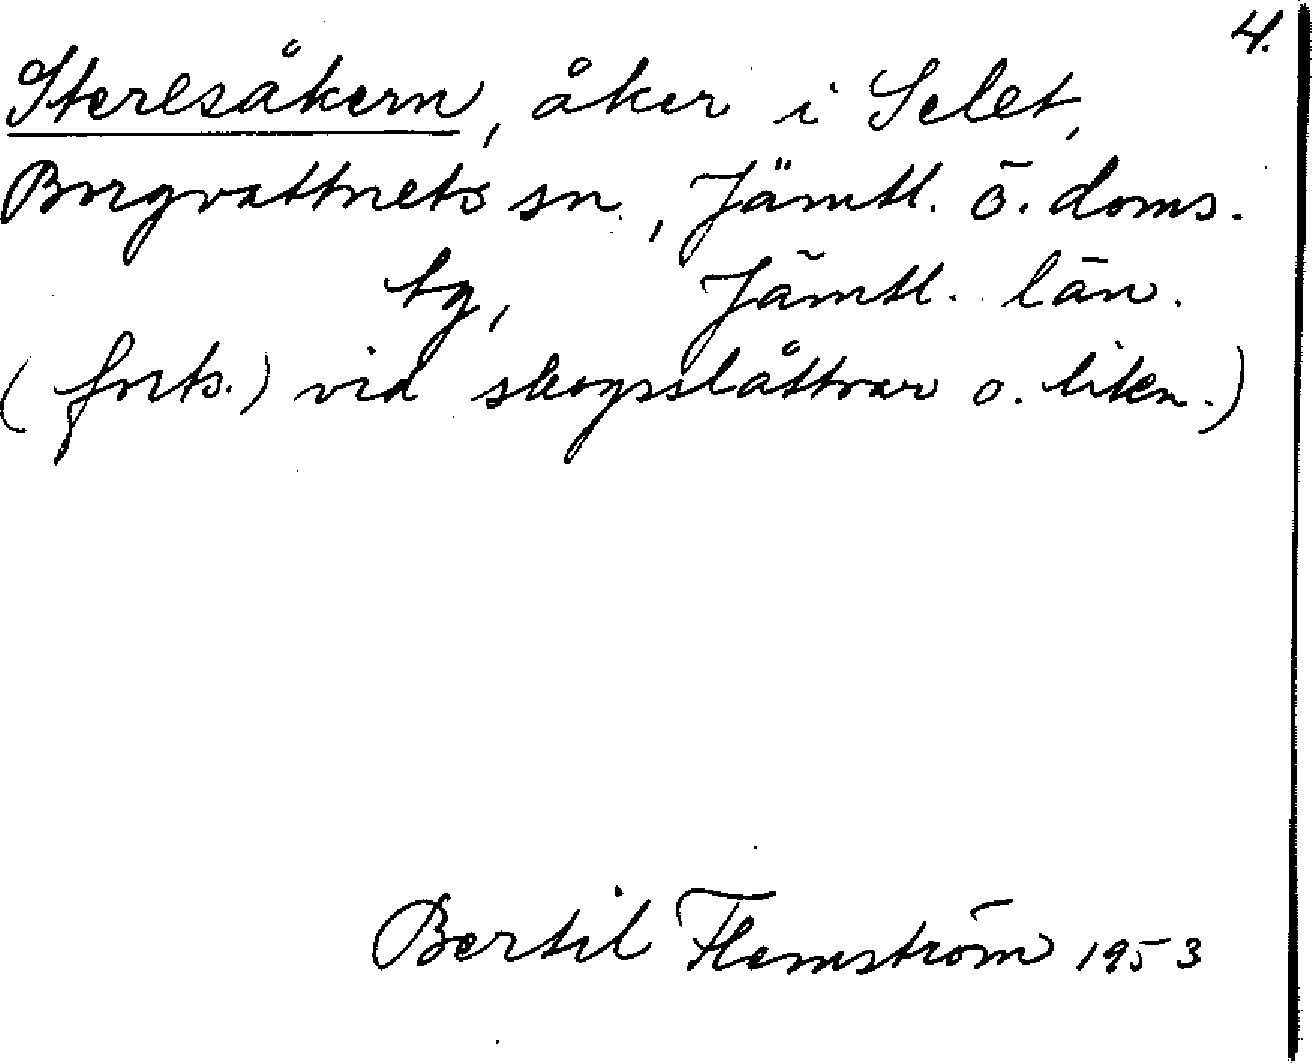 4.
Sterlsåkern, åker i Selet,
Borgvattnets sn., Jämtl. ö. doms.
tg, Jämtl. län.
(forts.) vid skogsslåttrar o. likn.)
Bertil Flemström 1953